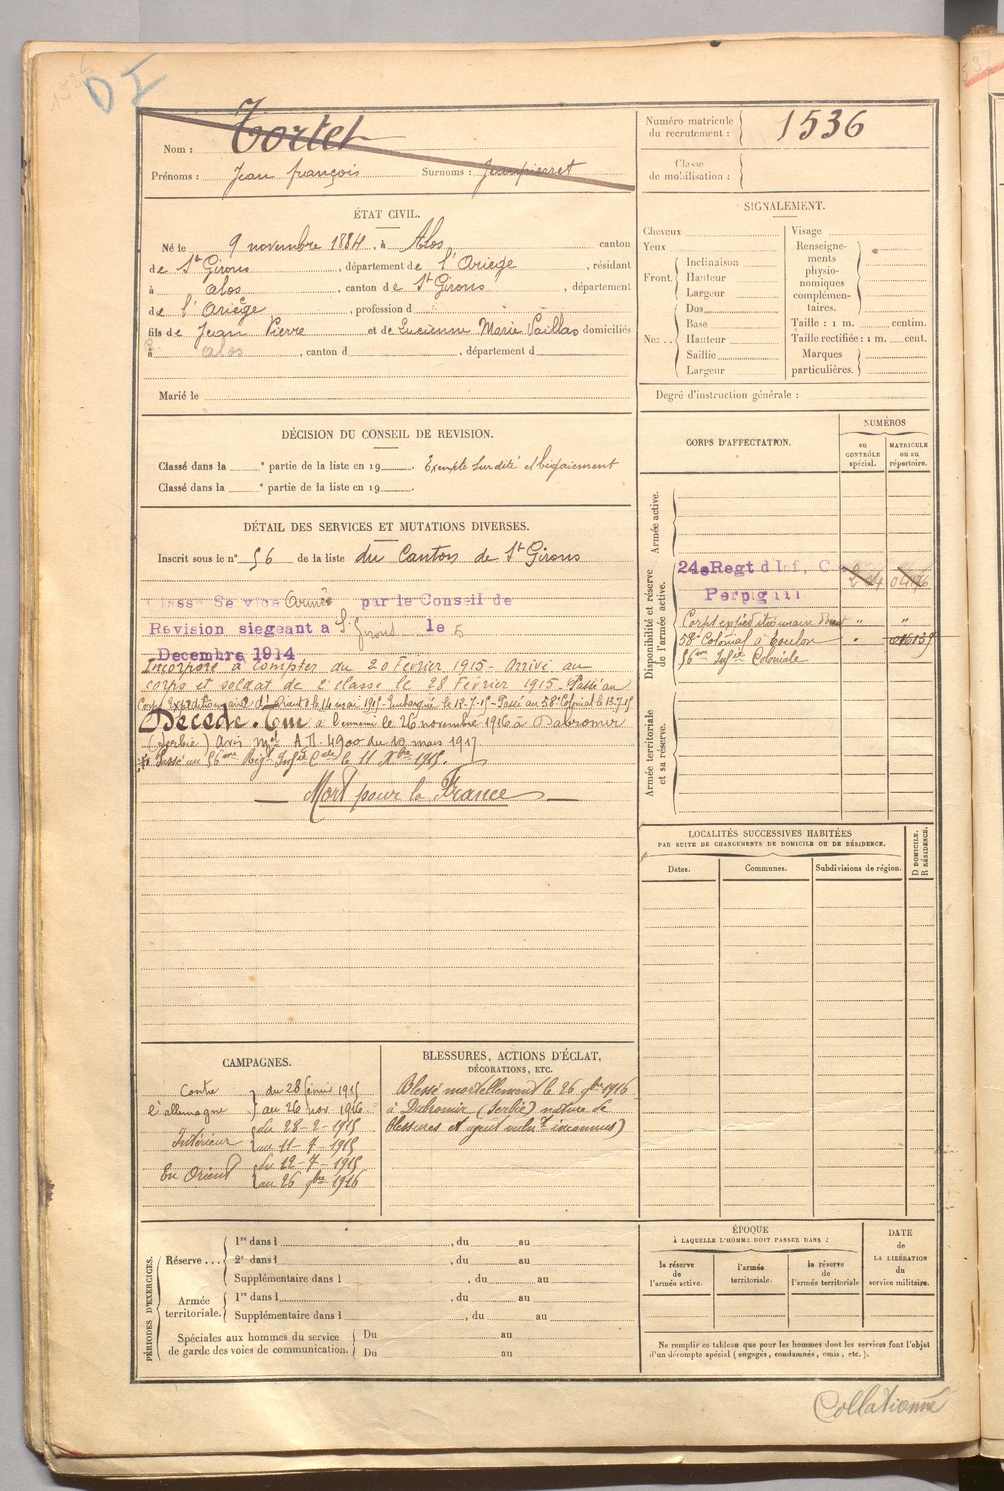 D I
Nom : Tortet
Prénoms : Jean françois Surnoms : Jeanpierret
Numéro matricule du recrutement : 1536
Classe de mobilisation :
ÉTAT CIVIL.
Né le 9 novembre 1884 à Alos canton
de St Girons, département de l'Ariège, résidant
à alos, canton de St Girons, département
de l'Ariège, profession d
fils de Jean Pierre et de Lucienne Marie Saillas domiciliés
à alos, canton d , département d
Marié le
SIGNALEMENT.
Cheveux
Yeux
Front. Inclinaison
Hauteur
Largeur
Nez .. Dos
Base
Hauteur
Saillie
Largeur
Visage
Renseignements physionomiques complémentaires.
Taille : 1 m. centim.
Taille rectifiée : 1 m. cent.
Marques particulières.
Degré d'instruction générale :
DÉCISION DU CONSEIL DE REVISION.
Classé dans la e partie de la liste en 19 . Exempté Surdité et bégaiement
Classé dans la e partie de la liste en 19 .
DÉTAIL DES SERVICES ET MUTATIONS DIVERSES.
Inscrit sous le n° 56 de la liste du Canton de St Girons
Classé Service Armé par le Conseil de
Révision siegeant a St Girons le 5
Decembre 1914
Incorporé à compter du 20 Février 1915 - Arrivé au
corps et soldat de 2e classe le 28 Février 1915 - Passé au
Corps Expéditionnaire d'Orient le 14 mai 1915 - Embarqué le 12-7-15 - Passé au 58e Colonial le 13-7-15
Décédé. Tué à l'ennemi le 26 novembre 1916 à Dabromir
(Serbie) Avis Mel A.D. 4900 du 10 mars 1917
Passé au 56ème Régt Infie Cale le 11 Xbre 1915.
— Mort pour la France —
CORPS D'AFFECTATION.
NUMÉROS
au CONTRÔLE spécial.
MATRICULE ou au répertoire.
Armée active.
Disponibilité et réserve de l'armée active.
24e Regt d'Inf, C
Perpignan
Corps expéditionnaire " "
58e Colonial à Toulon "
56ème Infie Coloniale
Armée territoriale et sa réserve.
LOCALITÉS SUCCESSIVES HABITÉES
PAR SUITE DE CHANGEMENTS DE DOMICILE OU DE RÉSIDENCE.
Dates.
Communes.
Subdivisions de région.
D DOMICILE. R RÉSIDENCE.
CAMPAGNES.
Contre l'allemagne } du 28 février 1915
au 26 nov 1916
Intérieur { du 28-2-1915
au 11-7-1915
En Orient { du 12-7-1915
au 26 9bre 1916
BLESSURES, ACTIONS D'ÉCLAT,
DÉCORATIONS, ETC.
Blessé mortellement le 26 9bre 1916
à Dabromir (Serbie) nature de
blessures et agent vulnt inconnus)
PÉRIODES D'EXERCICES.
Réserve ... 1re dans l , du au
2e dans l , du au
Supplémentaire dans l , du au
Armée territoriale. 1re dans l , du au
Supplémentaire dans l , du au
Spéciales aux hommes du service de garde des voies de communication. Du au
Du au
ÉPOQUE
À LAQUELLE L'HOMME DOIT PASSER DANS :
la réserve de l'armée active.
l'armée territoriale.
la réserve de l'armée territoriale
DATE de LA LIBÉRATION du service militaire.
Ne remplir ce tableau que pour les hommes dont les services font l'objet
d'un décompte spécial (engagés, condamnés, omis, etc.).
Collationné